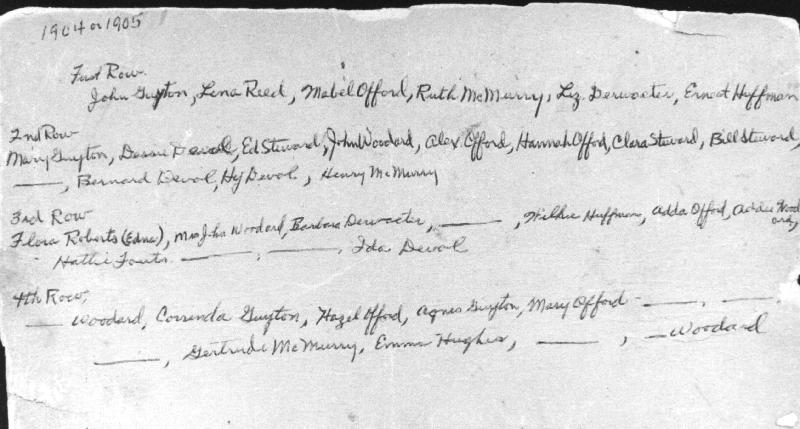 1904 or 1905
First Row.
John Guyton, Lena Reed, Mabel Offord, Ruth McMurry, Liz. Derwacter, Ernest Huffman
2nd Row
Mary Guyton, Dessie Deval, Ed Steward, John Woodard, Alex. Offord, Hannah Offord, Clara Steward, Bill Steward,
——, Bernard Deval, Hy Deval, Henry McMurry
3rd Row
Flora Roberts (Edna), Mrs John Woodard, Barbara Derwacter, ——, Huffman, Adda Offord, Addie Wood
ard,
Hattie Fouts ——, ——, Ida Deval
4th Row,
— Woodard, Correnda Guyton, Hazel Offord, Agnes Guyton, Mary Offord ——, ——.
——, Gertrude McMurry, Emma Hughes, ——, — Woodard